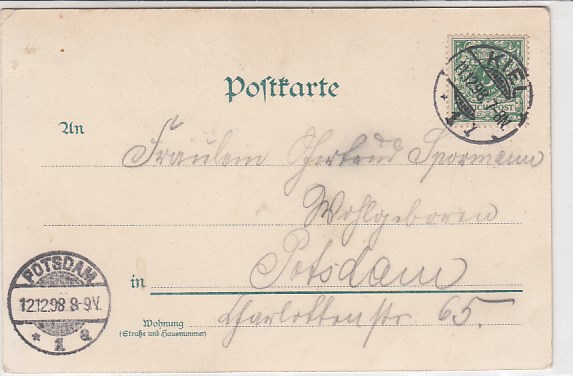 Postkarte
KIEL
11.12.98. 7-8N.
1.
REICHSPOST
An
Fräulein Gertrud Spormann
Wohlgeboren
in Potsdam
Charlottenstr 65.
Wohnung
(Straße und Hausnummer)
POTSDAM
12.12.98. 8-9V.
* 1 e